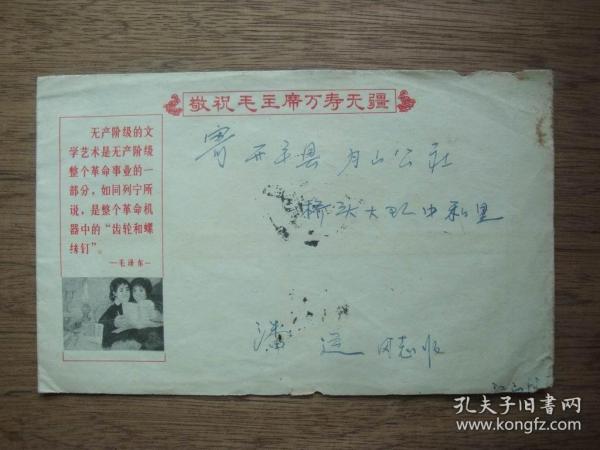 敬祝毛主席万寿无疆
无产阶级的文
学艺术是无产阶级
整个革命事业的一
部分，如同列宁所
说，是整个革命机
器中的“齿轮和螺
丝钉”。
—毛泽东—
寄开平县月山公社
桥头大队中和里
潘运同志收
孔夫子旧书网
www.kongfz.com